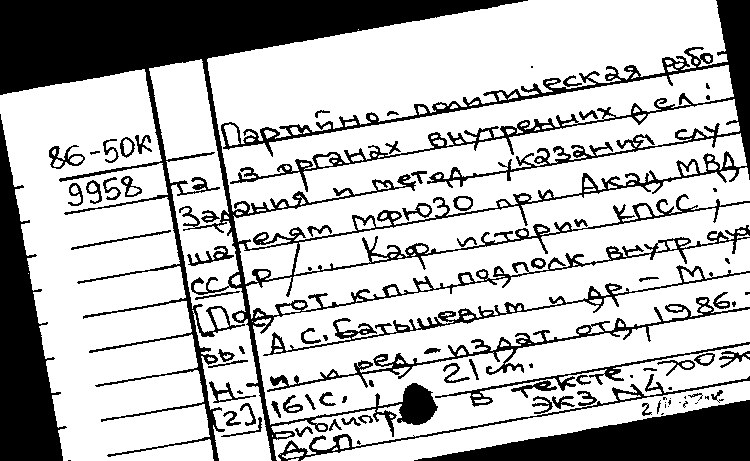 86-50К
9958
Партийно-политическая рабо-
та в органах внутренних дел:
Задания и метод. указания слу-
шателям МФЮЗО при Акад. МВД
СССР / ... Каф. истории КПСС;
[Подгот. к.п.н., подполк. внутр. служ
бы А.С.Батышевым и др. - М.:
Н.-и. и ред.-издат. отд., 1986. -
[2], 161с.; 21 см.
Библиогр. в тексте. - 700 эк
ДСП. экз. N4.